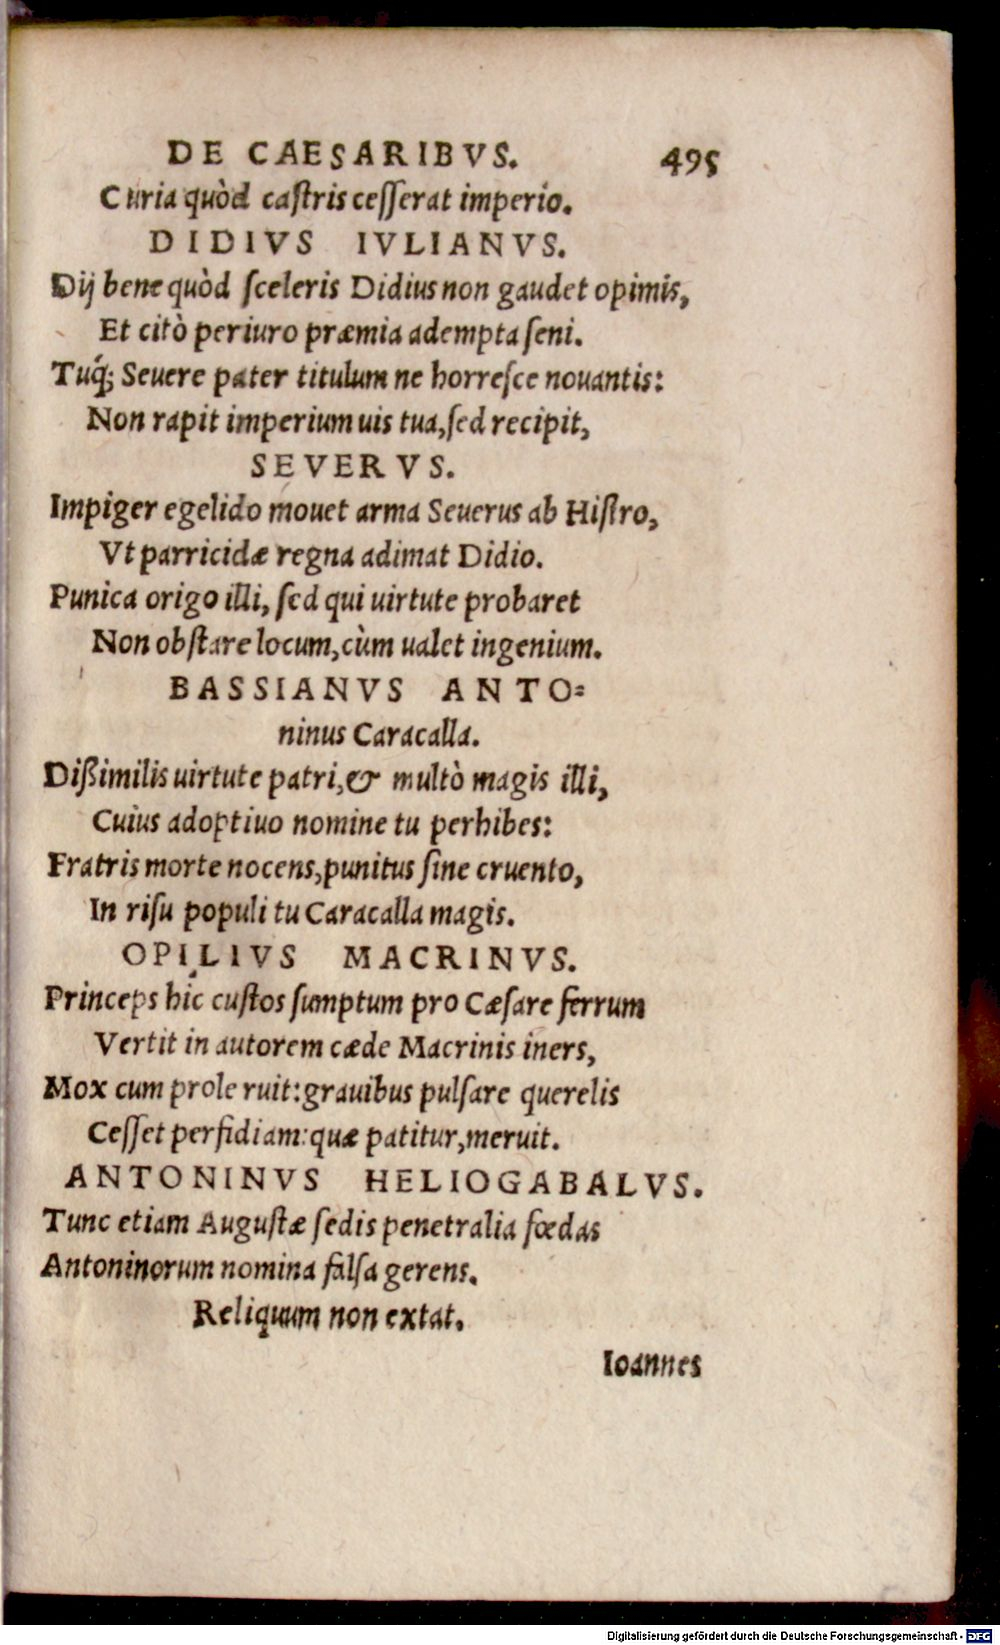 DE CAESARIBVS. 495
Curia quòd castris cesserat imperio.
DIDIVS IVLIANVS.
Dij bene quòd sceleris Didius non gaudet opimis,
Et citò periuro præmia adempta seni.
Tuq́; Seuere pater titulum ne horresce nouantis:
Non rapit imperium uis tua, sed recipit,
SEVERVS.
Impiger egelido mouet arma Seuerus ab Histro,
Vt parricidæ regna adimat Didio.
Punica origo illi, sed qui uirtute probaret
Non obstare locum, cùm ualet ingenium.
BASSIANVS ANTO=
ninus Caracalla.
Dißimilis uirtute patri, & multò magis illi,
Cuius adoptiuo nomine tu perhibes:
Fratris morte nocens, punitus fine cruento,
In risu populi tu Caracalla magis.
OPILIVS MACRINVS.
Princeps hîc custos sumptum pro Cæsare ferrum
Vertit in autorem cæde Macrinis iners,
Mox cum prole ruit: grauibus pulsare querelis
Cesset perfidiam: quæ patitur, meruit.
ANTONINVS HELIOGABALVS.
Tunc etiam Augustæ sedis penetralia fœdas
Antoninorum nomina falsa gerens.
Reliquum non extat.
Ioannes
Digitalisierung gefördert durch die Deutsche Forschungsgemeinschaft - DFG